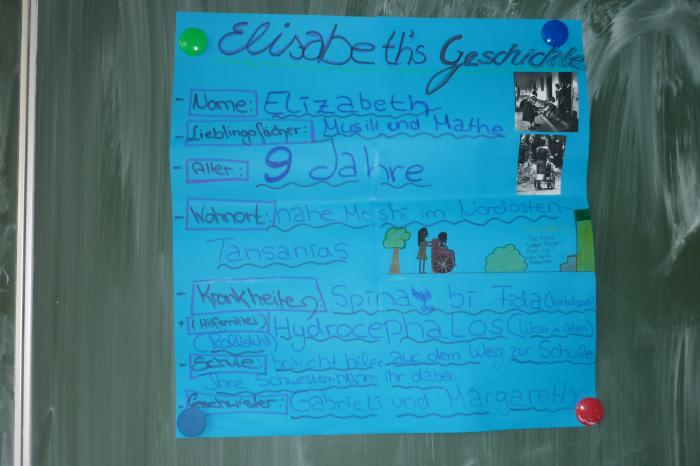 Elisabeth's Geschichte
- Name: Elizabeth
- Lieblingsfächer: Musik und Mathe
- Alter: 9 Jahre
- Wohnort: nähe Moshi im Nordosten
Tansanias
- Krankheiten: Spina bi Fida
+ (Hilfsmittel) Hydrocephalos (Wasser im Gehirn)
(Rollstuhl)
- Schule: braucht hilfe auf dem Weg zur Schule
Ihre Schwestern helfen ihr dabei.
- Geschwister: Gabrieli und Margareth